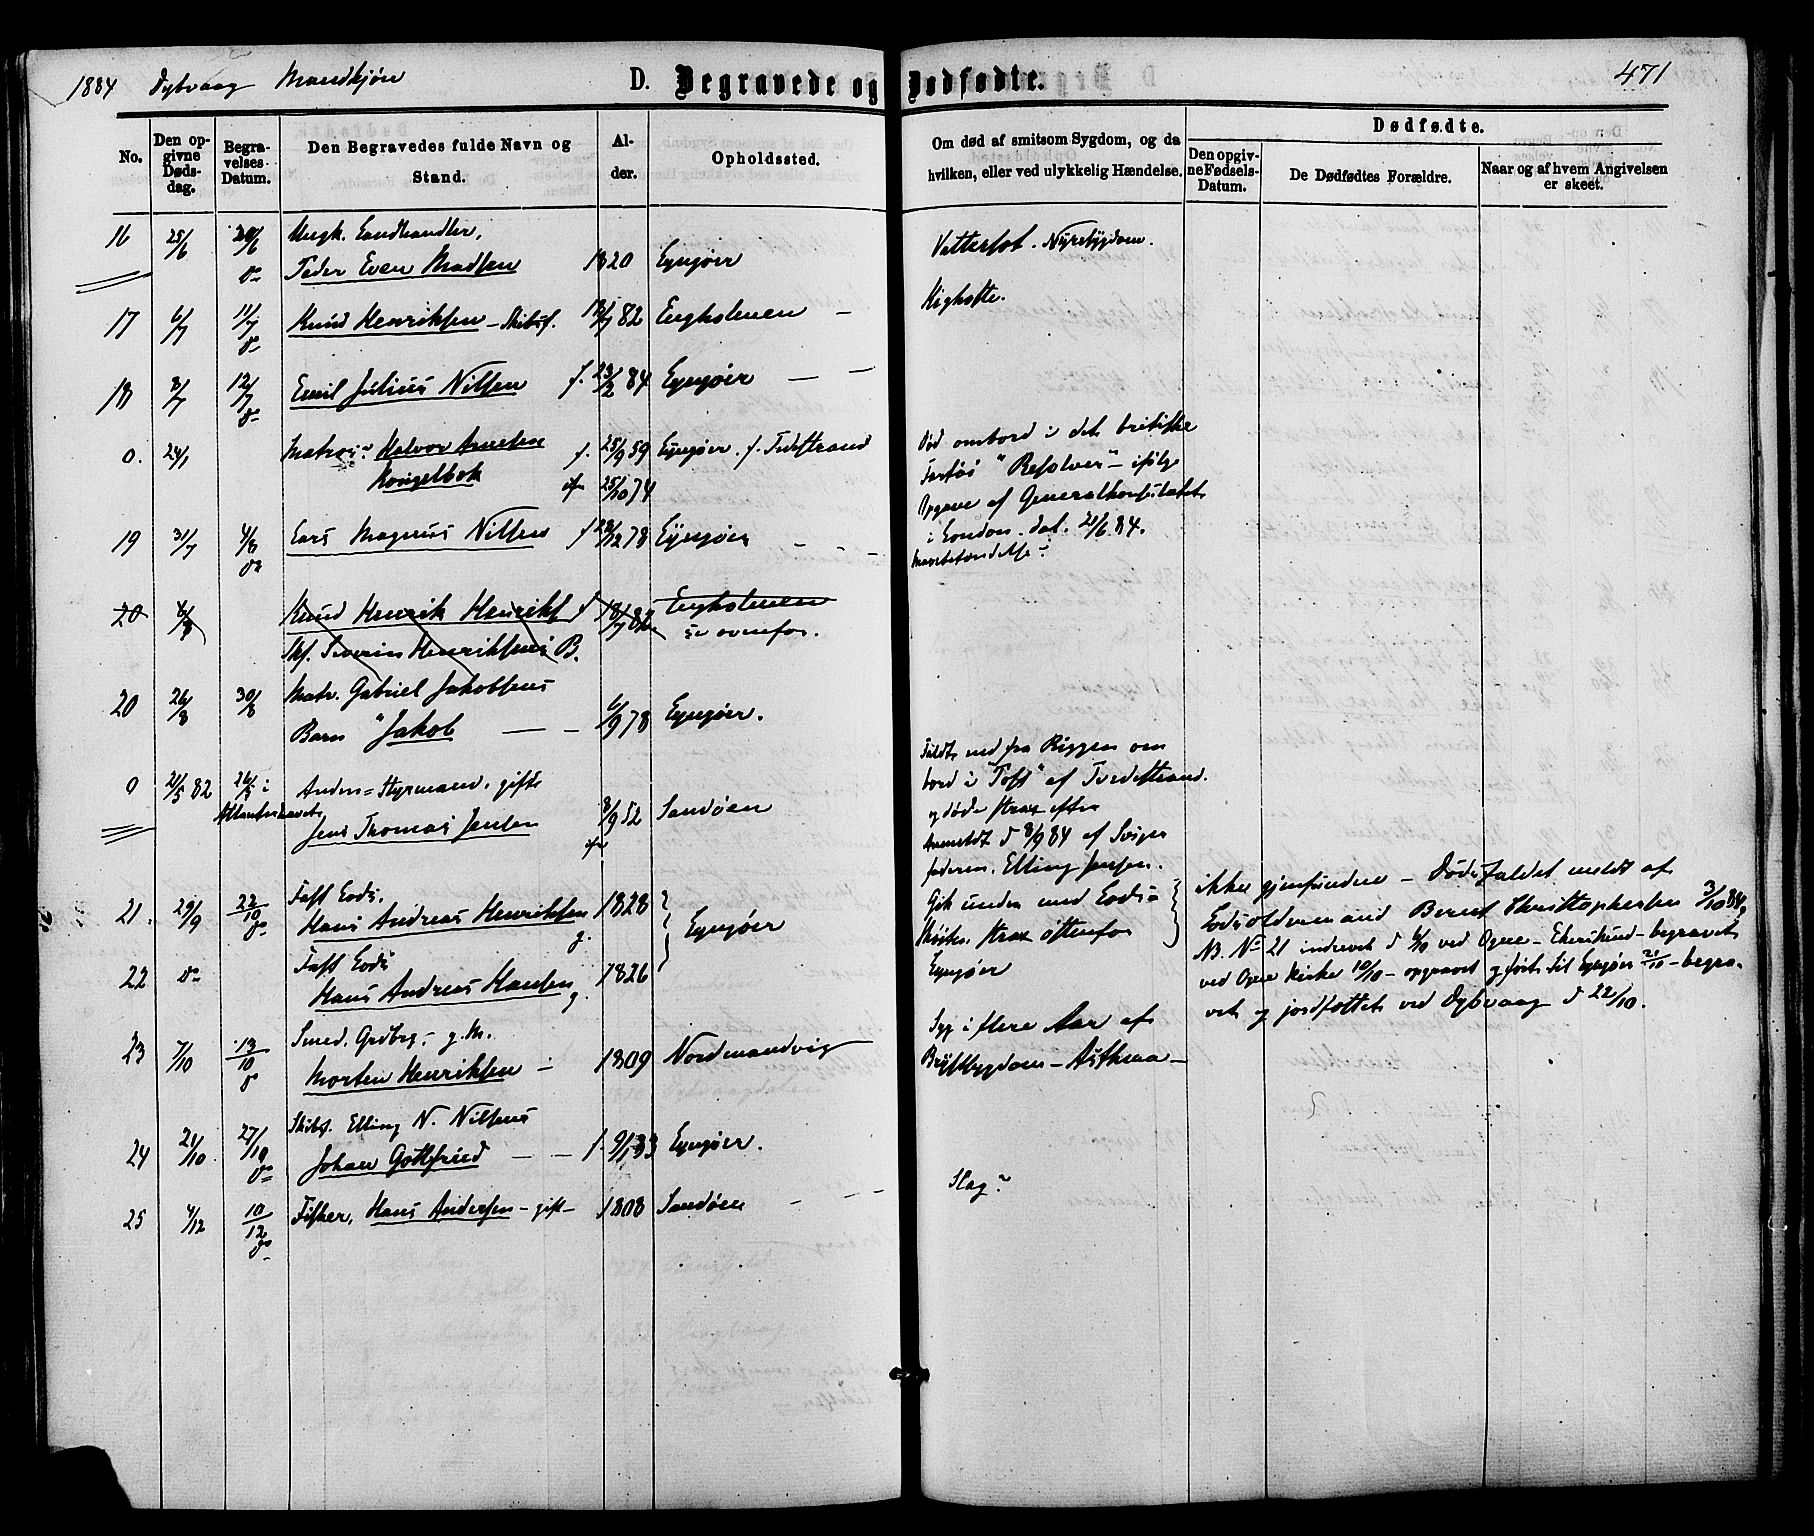 1884 Dybvaag Mandkjøn D. Begravede og Dødfødte. 471
No.
Den opgivne Dødsdag.
Begravelses-Datum.
Den Begravedes fulde Navn og Stand.
Alder.
Opholdssted.
Om død af smitsom Sygdom, og da hvilken, eller ved ulykkelig Hændelse.
Dødfødte.
Den opgivne Fødsels-Datum.
De Dødfødtes Forældre.
Naar og af hvem Angivelsen er skeet.
16 25/6 Ungk. Landhandler,
Peder Even Madsen 1820 Lyngøer Vattersot. Nyresygdom.
17 6/7 11/7 Knud Henriksen – Skibsf. 18/7 82 Lyngholmen – Kighoste.
18 8/7 12/7 Emil Julius Nilsen f. 23/2 84 Lyngøer – –
0. 24/1 Matros Halvor Amelsen f. 25/9 59 Lyngøer. f. Tvedestrand
Kongelbok 25/10 74
Død ombord i det britiske
Fartøi "Resolver" – ifølge
Opgave af Generalkonsulatet
i London. dat. 21/6 84.
19 31/7 4/8 Lars Magnus Nilsen f 28/12 78 Lyngøer –
20 6/8 Knud Henrik Henriks f 18/7 82 Lyngholmen
Skf. Severin Henriksens B. se ovenfor.
20 26/8 30/8 Matr. Gabriel Jakobsens
Barn "Jakob – – 6/9 78 Lyngøer.
0 21/5 82 26/5 i Atlanterhavet Anden Styrmand, gift
Jens Thomas Jensen 8/9 52 Sandøen
Faldt ned fra Riggen om
bord i "Toft" af Tvedestrand
og døde strax efter
Anmeldt d 8/9 84 af Sviger
faderen, Elling Jensen.
21. 29/9 22/10 Fast Lods,
Hans Andreas Henriksen g. 1828 Lyngøer
Gik under med Lods-
Skøiten strax østenfor
Lyngøer
22 do Fast Lods
Hans Andreas Hansen g. 1826
ikke gjenfundne – Dødsfaldet meldt af
Lodsoldermand Bernt Kristophersen 3/10 84,
NB. No 21 indrevet d 6/9 ved Ogne – Ekersund – begravet
ved Ogne Kirke 10/10 – opgravet og ført til Lyngøer 21/10 – begra-
vet og jordfæstet ved Dybvaag d 22/10.
23 7/10 13/10 Smed, Grdbrg, g. M.
Morten Henriksen – 1809 Nordmandvig
Syg i flere Aar af
Brystsygdom – Asthma –
24 21/10 27/10 Skibsf. Elling N. Nilsens
Johan Gottfried – – f. 9/1 33 Lyngøer.
25 4/12 10/12 Fisker, Hans Andersen – gift – 1808 Sandøen – – Slag?